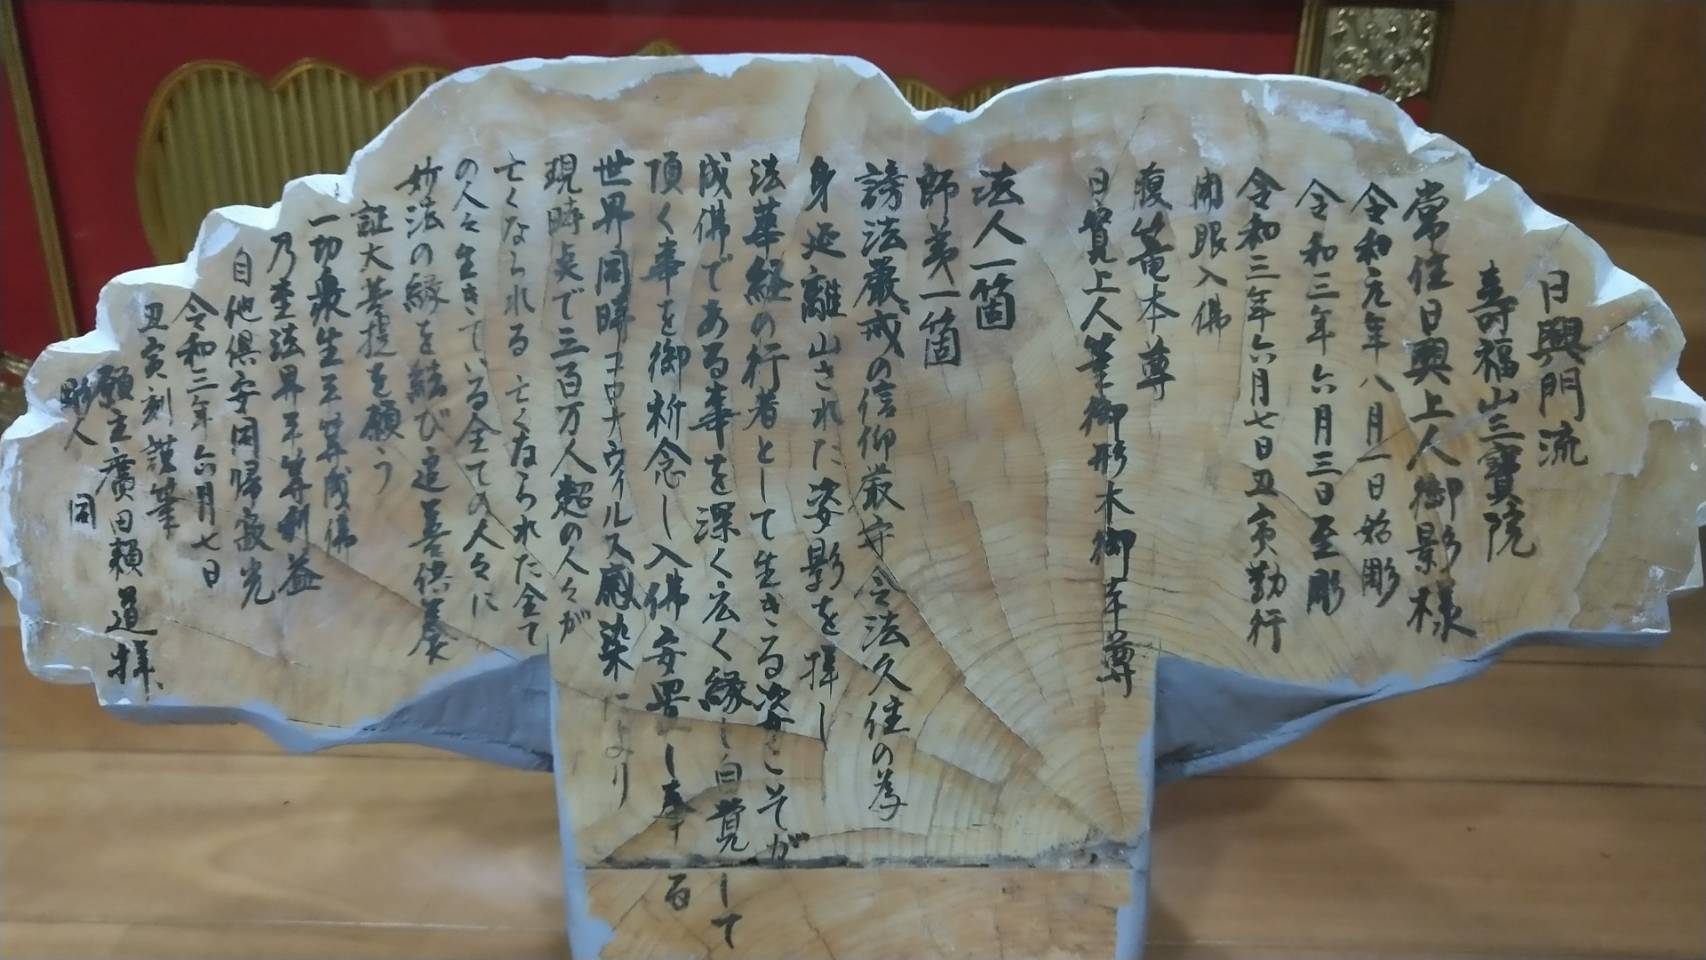 日興門流
壽福山三寶院
常住日興上人御影様
令和元年八月一日始彫
令和三年六月三日至彫
令和三年六月七日丑寅勤行
開眼入佛
腹篭本尊
日賢上人筆御形木御本尊
法人一箇
師弟一箇
謗法厳戒の信仰厳守令法久住の為
身延離山された姿影を拝し
法華経の行者として生きる姿こそが
成佛である事を深く広く縁し自覚して
頂く事を御祈念し入佛安置し奉る
世界同時コロナウィルス感染により
現時点で三百万人超の人々が
亡くなられる 亡くなられた全て
の人々生きている全ての人々に
妙法の縁を結び追善供養
証大菩提を願う
一切衆生平等成佛
乃至法界平等利益
自他倶安同帰寂光
令和三年六月七日
丑寅刻謹筆
願主廣田頼道拝
彫人 同